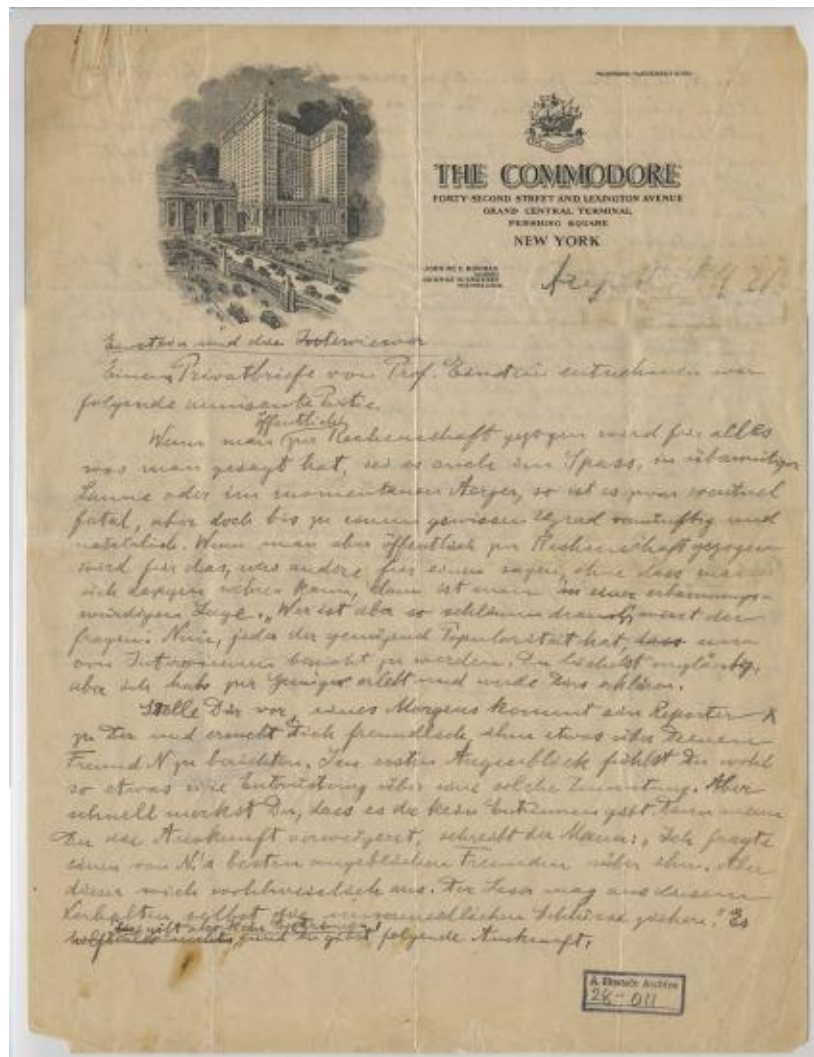 THE COMMODORE
FORTY-SECOND STREET AND LEXINGTON AVENUE
GRAND CENTRAL TERMINAL
PERSHING SQUARE
NEW YORK
Einstein und die Interviewer
Einem Privatbriefe von Prof. Einstein entnehmen wir
folgende amüsante
öffentlich
Wenn man zur Rechenschaft gezogen wird für alles
was man gesagt hat, sei es auch im Spass, in übermütiger
Laune oder im momentanen Aerger, so ist es zwar eventuel
fatal, aber doch bis zu einem gewissen Grad vernünftig und
natürlich. Wenn man aber öffentlich zur Rechenschaft gezogen
wird für das, was andere für einen sagen, ohne dass man
sich dagegen wehren kann, dann ist man in einer erbarmungs-
würdigen Lage. „Wer ist aber so schlimm dran?" wirst du
fragen. Nun, jeder der genügend Popularität hat, um
von Interviewern besucht zu werden. Du lächelst ungläubig,
aber ich habs zur Genüge erlebt und werde Dirs erklären.
Stelle Dir vor, eines Morgens kommt ein Reporter
zu Dir und ersucht Dich freundlich, ihm etwas über Deinen
Freund N zu berichten. Im ersten Augenblick fühlst Du wohl
so etwas wie Entrüstung über eine solche Zumutung. Aber
schnell merkst Du, dass es da kein Entrinnen gibt. Denn wenn
Du die Auskunft verweigerst, schreibt der Mann: „Ich fragte
einen von N's besten angeblichen Freunden über ihn. Aber
dieser wich wohlweislich aus. Der Leser mag aus diesem
Verhalten selbst die unvermeidlichen Schlüsse ziehen." Es
gibt also kein
folgende Auskunft.
A. Einstein Archive
28-011